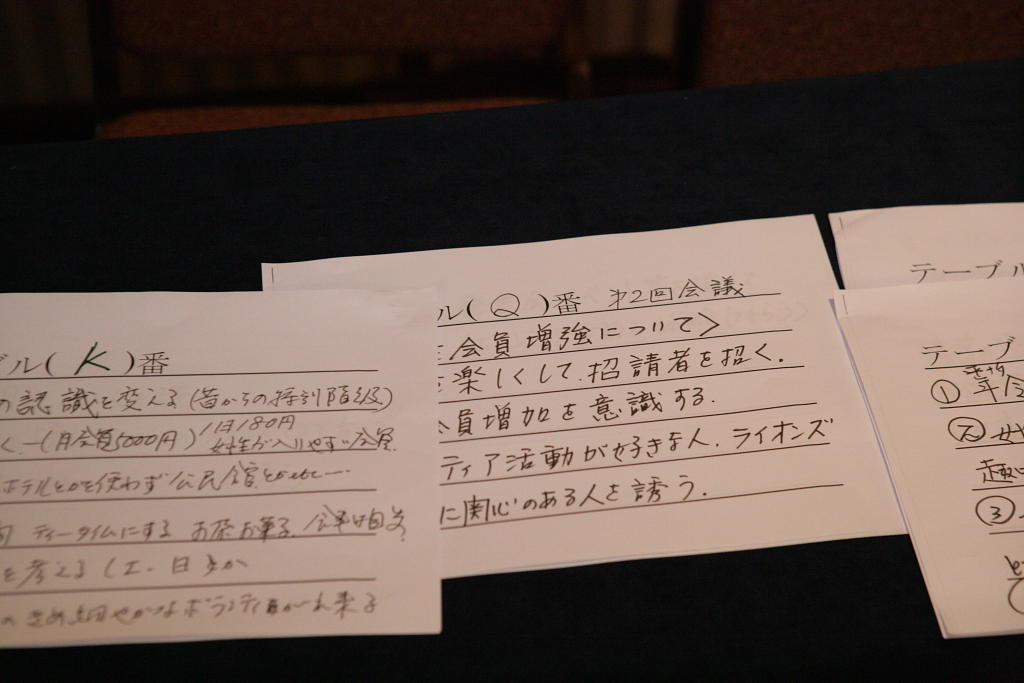 ブル( K )番
の認識を変える(昔からの特別階級)
く.―(月会費5000円) 1日180円
女性が入りやすい会費
ホテルとかを使わず公民館とかetc―
ティータイムにする お茶お菓子. 食事は自
を考える(土・日
ボランティア 来る
ル( Q )番 才2回会議
会員増強について>
楽しくして.招請者を招く.
員増加を意識する.
ティア活動が好きな人.ライオンズ
に関心のある人を誘う.
テーブル
テーブ
① 年会
②
趣
③